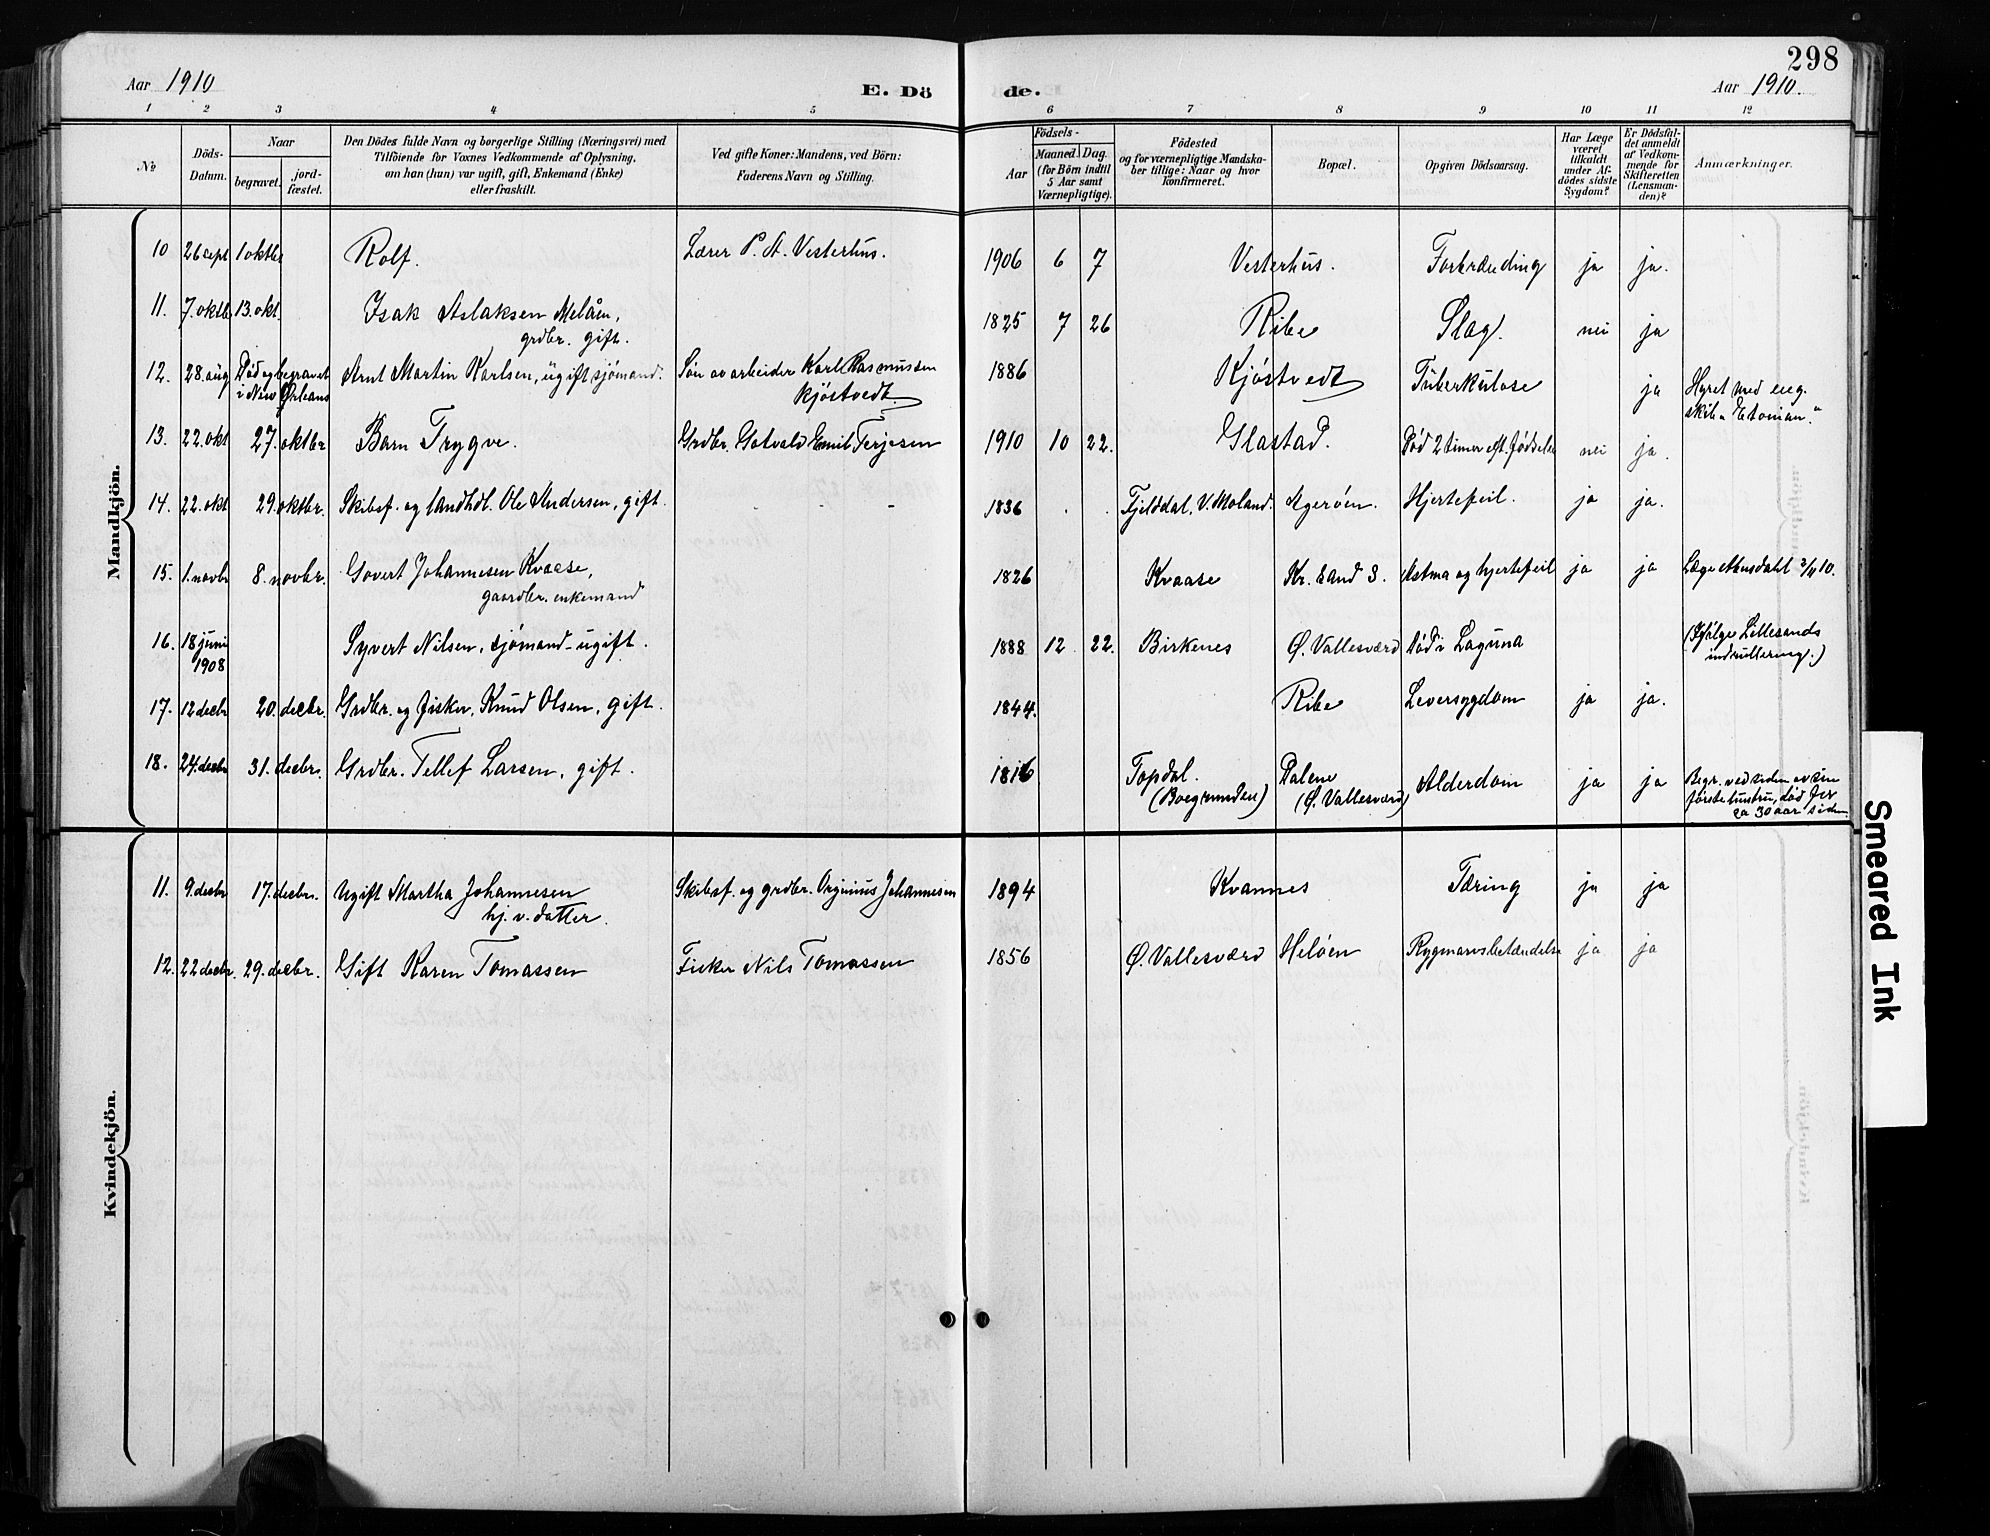 298
Aar 1910 E. Dö de. Aar 1910.
1 2 3 4 5 6 7 8 9 10 11 12
№
Döds-Datum.
Naar
begravet.
jord-fæstet.
Den Dödes fulde Navn og borgerlige Stilling (Næringsvei) med
Tilföiende for Voxnes Vedkommende af Oplysning,
om han (hun) var ugift, gift, Enkemand (Enke)
eller fraskilt.
Ved gifte Koner: Mandens, ved Börn:
Faderens Navn og Stilling.
Födsels-
Aar
Maaned. Dag.
(for Börn indtil
5 Aar samt
Værnepligtige).
Födested
og for værnepligtige Mandska-
ber tillige: Naar og hvor
konfirmeret.
Bopæl.
Opgiven Dödsaarsag.
Har Læge
været
tilkaldt
under Af-
dödes sidste
Sygdom?
Er Dödsfal-
det anmeldt
af Vedkom-
mende for
Skifteretten
(Lensman-
den)?
Anmærkninger.
Mandkjön.
10 26 sept 1 oktbr Rolf. Lærer P. A. Vesterhus. 1906 6 7 Vesterhus. Forbrænding ja ja.
11. 7. oktb 13. okt. Isak Aslaksen Melåen, 1825 7 26 Ribe Slag. nei ja
grdbr. gift.
12. 28. aug Död og begravet Arnt Martin Karlsen, ugift sjømand. Søn av arbeider Karl Rasmussen 1886 Kjøstvedt Tuberkulose ja Hyret med eng.
i New Orleans kjøstvedt. skib "Etonian."
13. 22. okt 27. oktbr Barn Trygve. Grdbr. Gotvald Emil Terjesen 1910 10 22. Glastad. Død 2 timer eft. fødselen nei ja.
14. 22. okt 29. oktbr. Skibsf. og landhdl. Ole Andersen, gift. - - - 1836 . . Fjelddal, V. Moland. Agerøen. Hjertefeil. ja ja.
15. 1. novbr 8. novbr. Govert Johannesen Kvaase, 1826 Kvaase Kr. Sand S. Astma og hjertefeil ja ja Læge 2/11 10.
gaardbr. enkemand
16. 18 juni Syvert Nilsen, sjømand - ugift. 1888 12 22. Birkenes Ø. Vallesværd Død i Laguna (Ifølge Lillesands
1908 indrullering.)
17. 12 decbr 20. decbr. Grdbr. og fisker, Knud Olsen, gift. 1844. Ribe Leversygdom ja ja.
18. 24. decbr 31. decbr. Grdbr. Tellef Larsen, gift. 1816 Topdal. Dalene Alderdom ja ja Begr. ved siden av sin
(Boegrunden) (Ø. Vallesværd) første hustru, død for
ca 30 aar siden.
Kvindekjön.
11. 9. decbr 17. decbr. Ugift Martha Johannesen Skibsf. og grdbr. Orginius Johannesen 1894 Kvannes Tæring ja ja
hj. v. datter.
12. 22 decbr. 29. decbr. Gift Karen Tomassen Fisker Nils Tomassen 1856 Ø. Vallesværd Heløen Rygmarvsbetændelse ja ja
Smeared Ink